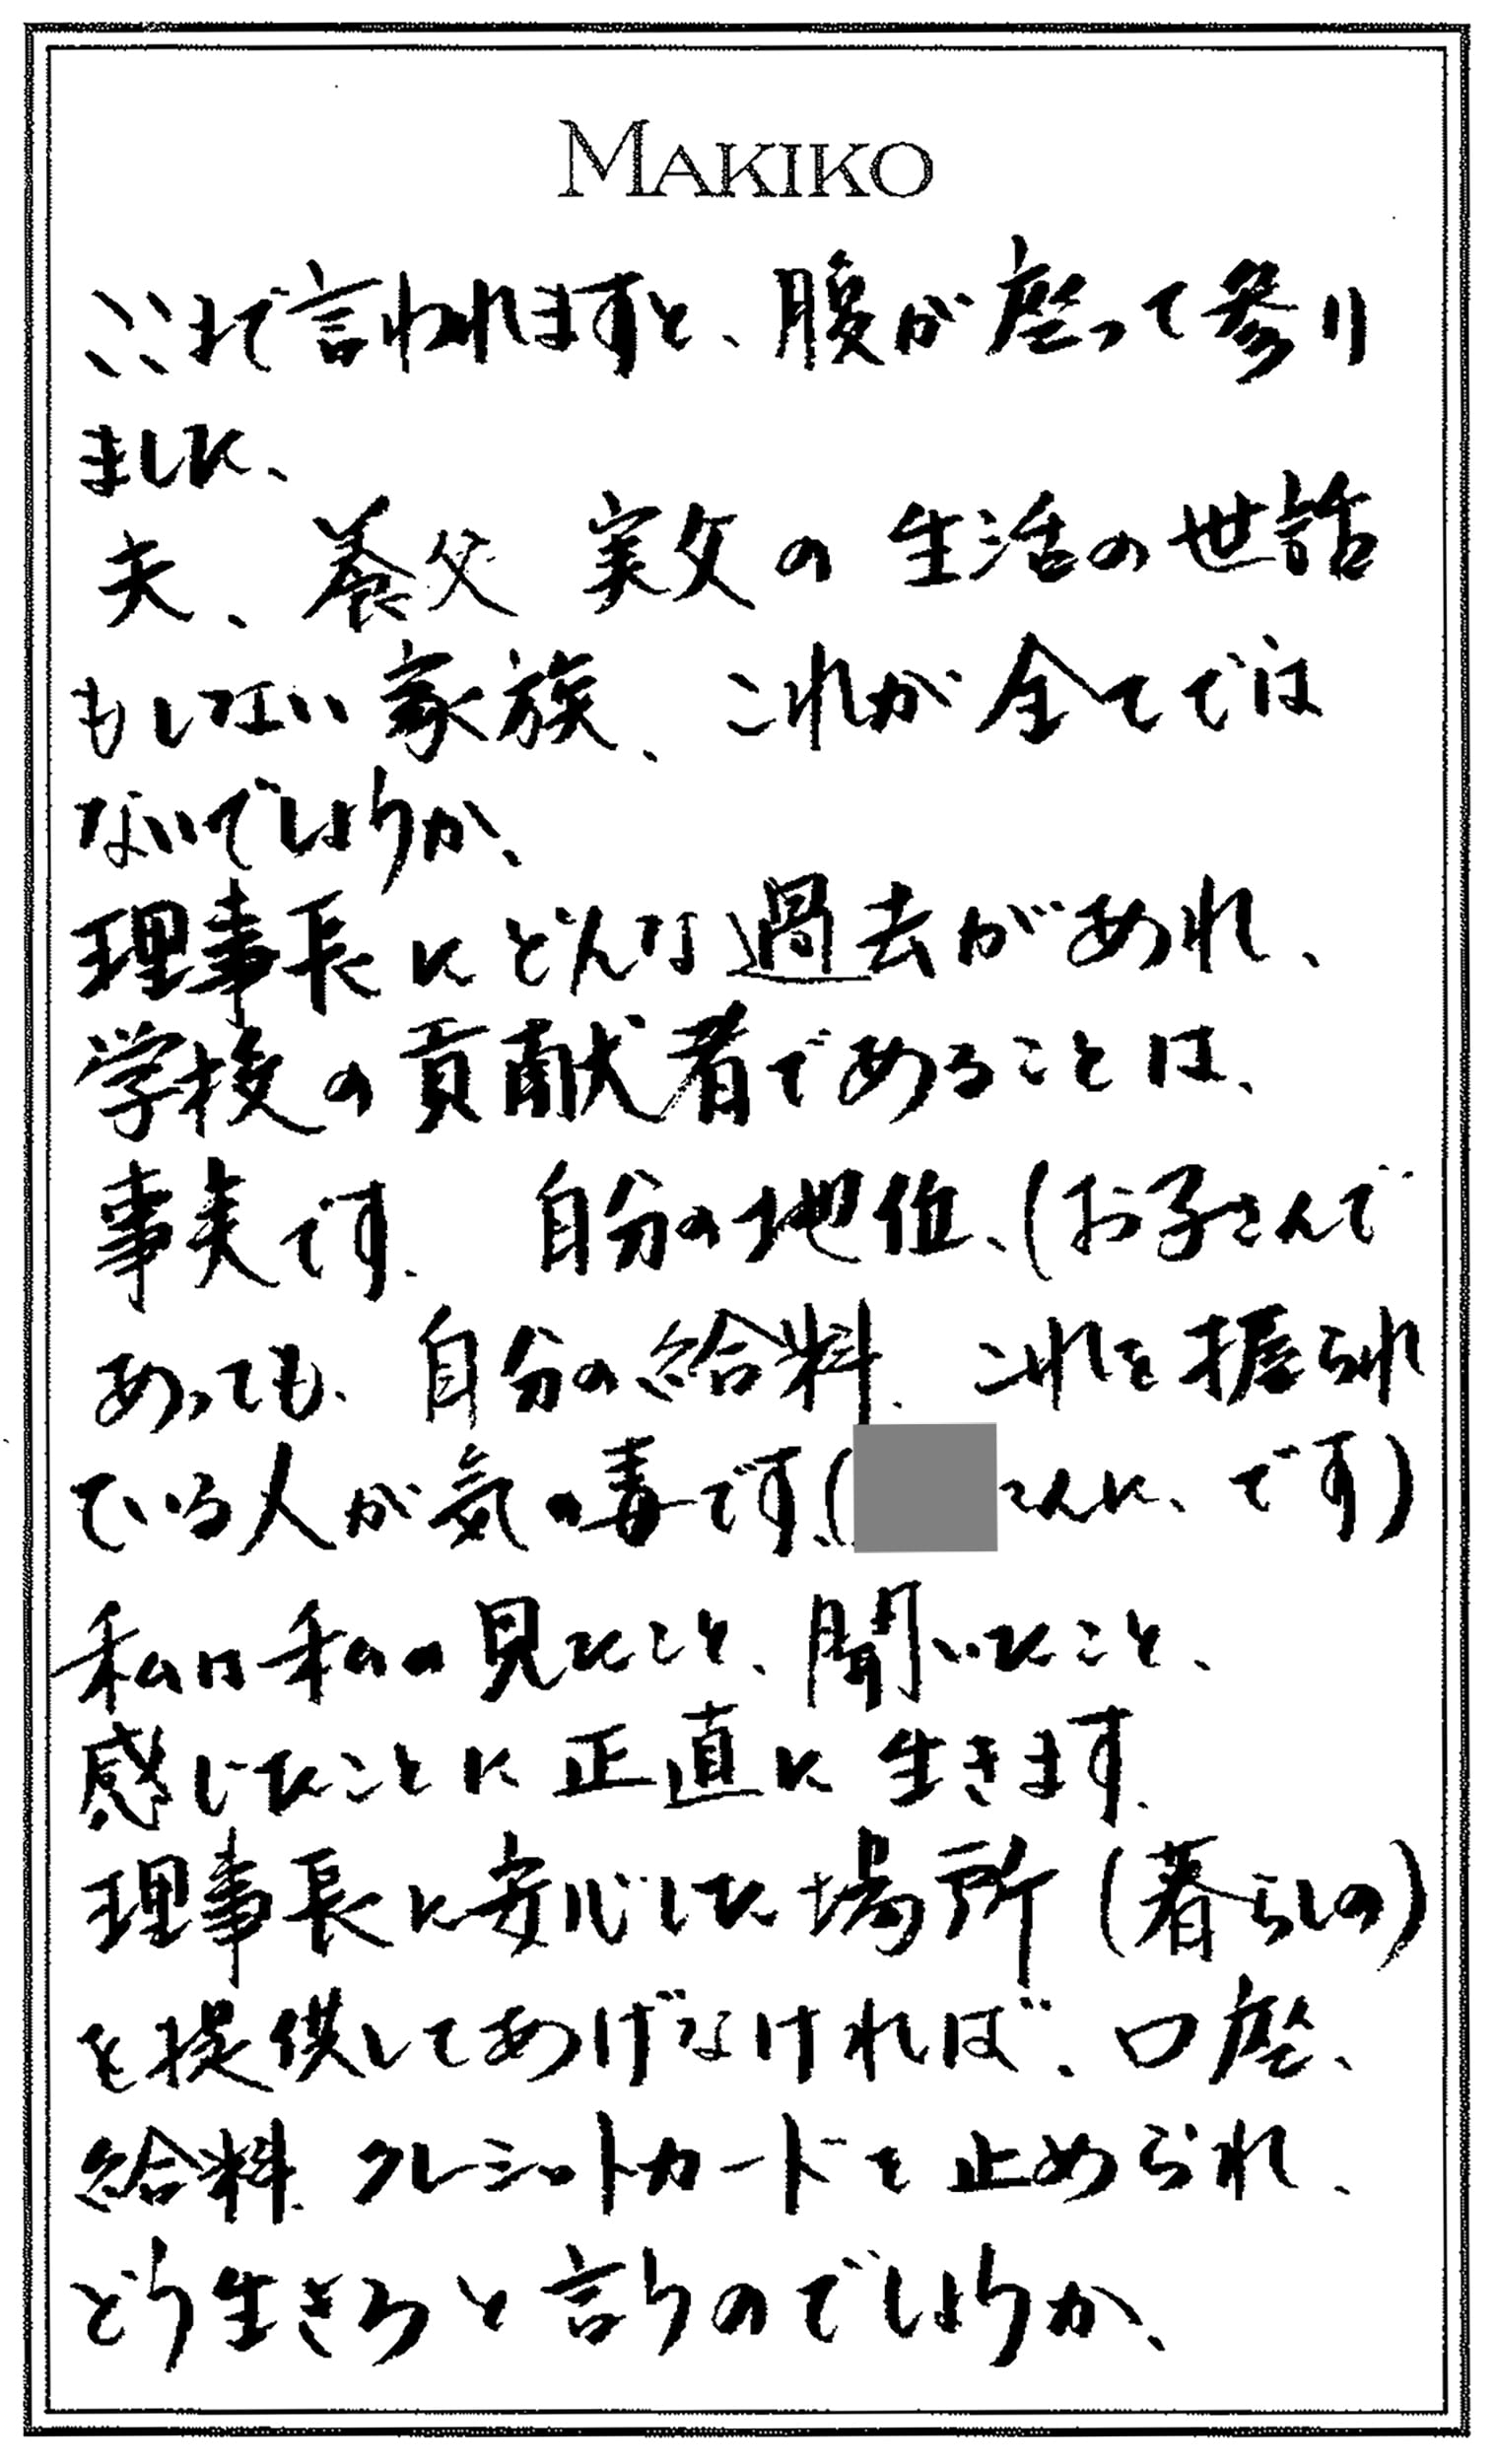 MAKIKO
ここまで言われますと、腹が座って参り
ました、
夫、養父 実父の生活の世話
もしない家族、これが全てでは
ないでしょうか、
理事長にどんな過去があれ、
学校の貢献者であることは、
事実です、 自分の地位、(お子さんで
あっても、自分の給料、これを握られ
ている人が気の毒です、(さんに、です)
私は私の見たこと、聞いたこと、
感じたことに正直に生きます、
理事長に安心した場所(暮らしの)
を提供してあげなければ、口座、
給料、クレジットカードを止められ、
どう生きろと言うのでしょうか、